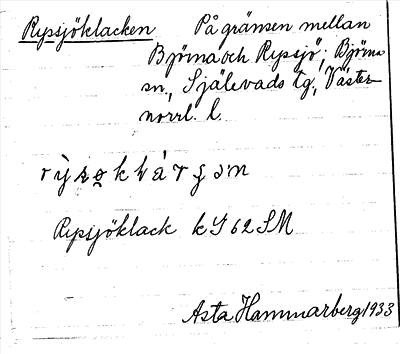 Rypsjöklacken På gränsen mellan
Björna och Rypsjö; Björna
sn., Själevads tg., Väster-
norrl. l.
Rypsjöklack kJ 62 SM
Asta Hammarberg 1933